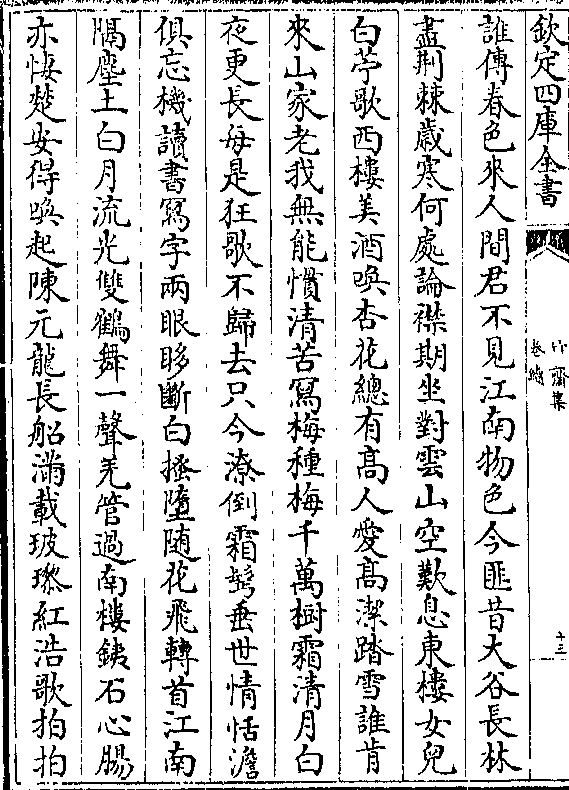 欽定四庫全書
竹齋集
卷續
十三
誰傳春色來人間君不見江南物色今匪昔大谷長林
盡荆棘歲寒何處論襟期坐對雲山空歎息東樓女兒
白苧歌西樓美酒喚杏花總有髙人愛髙潔踏雪誰肯
來山家老我無能慣清苦寫梅種梅千萬樹霜清月白
夜更長毎是狂歌不歸去只今潦倒霜鬢垂世情恬澹
俱忘機讀書寫字兩眼眵斷白搔墮随花飛轉首江南
隔塵土白月流光雙鶴舞一聲羌管過南樓鐵石心腸
亦悽楚安得喚起陳元龍長船滿載玻瓈紅浩歌拍拍